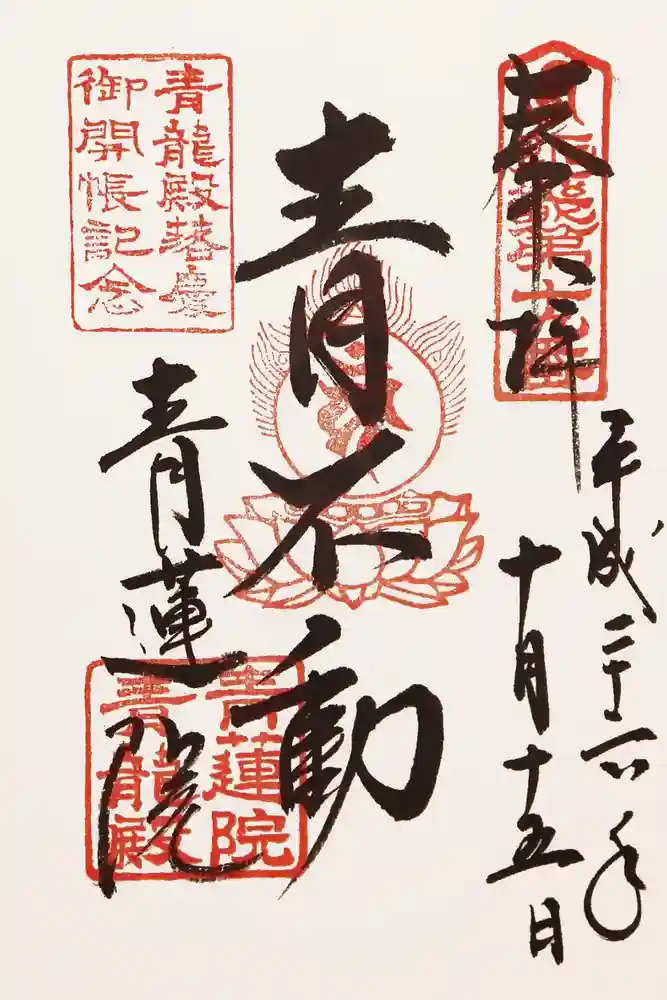 奉拝
平成二十六年
十月十五日
青不動
青蓮院
青龍殿
青龍殿落慶
御開帳記念
青蓮院